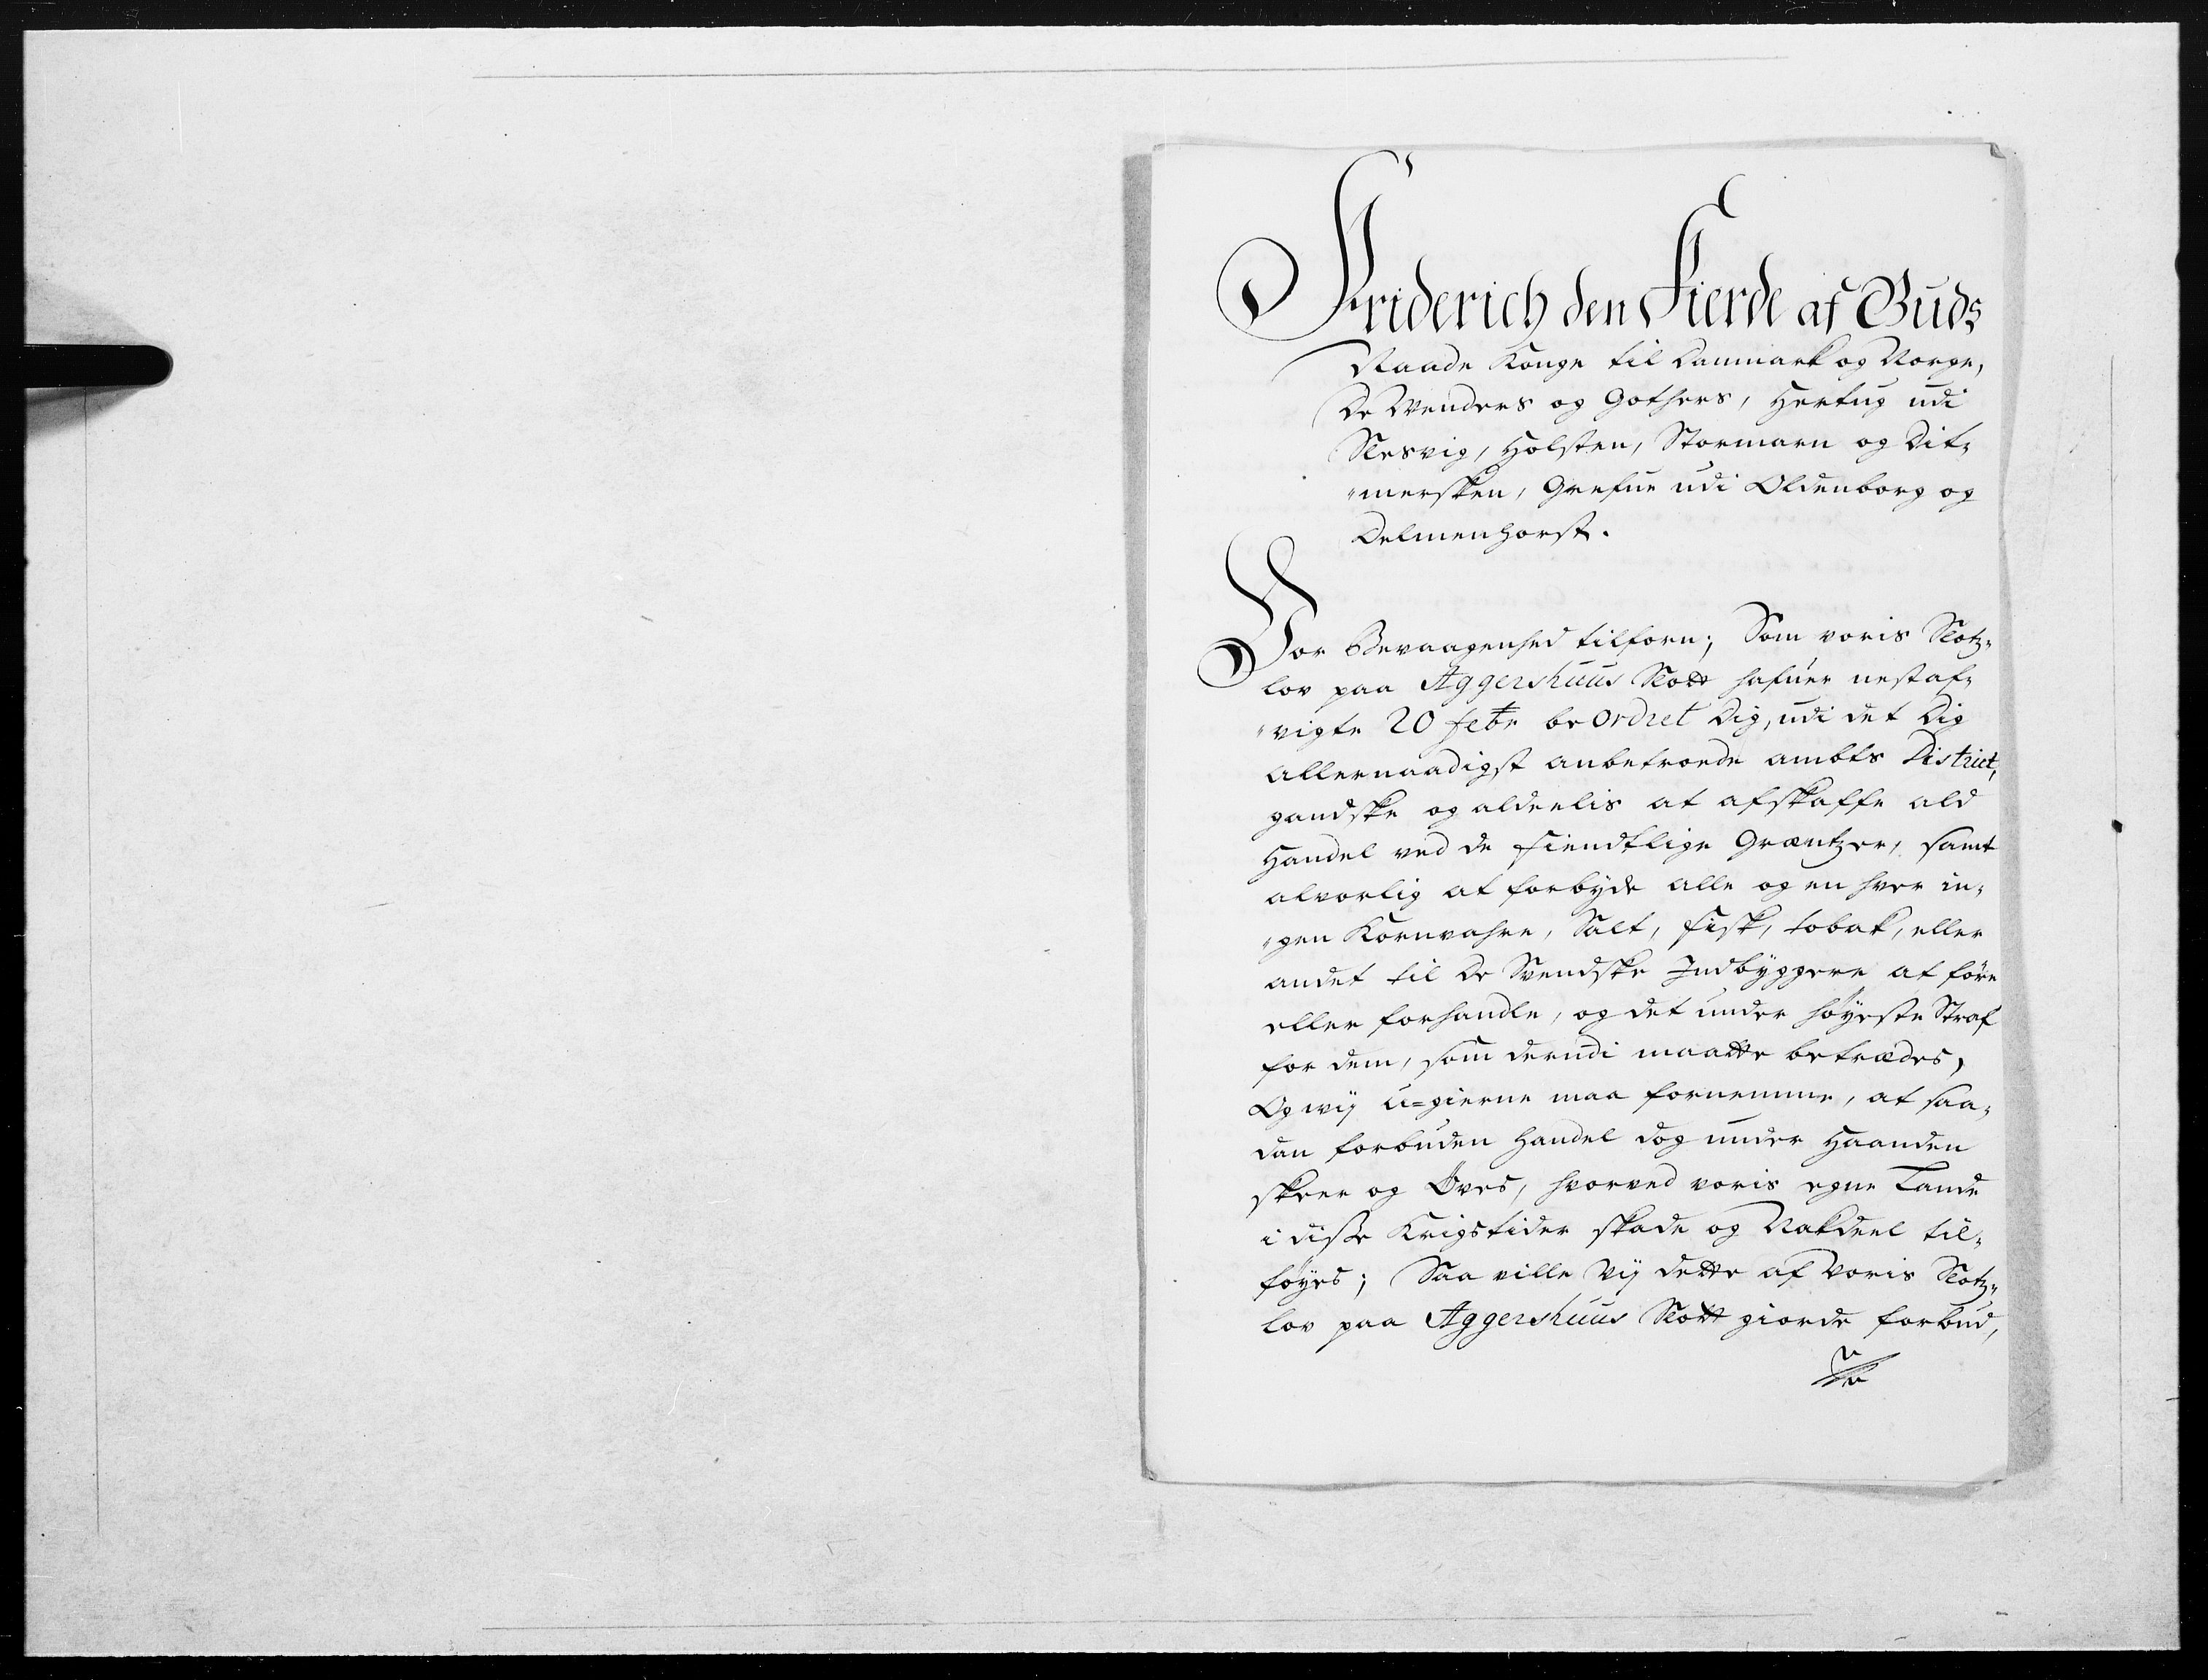 Friderich den Fierde af Guds
Naade Konge til Danmark og Norge,
De Wenders og Gothers, Hertug udi
Slesvig, Holsten, Stormarn og Dit-
-mersken, Grefue udi Oldenborg og
Delmenhorst.
Vor Bevaagenhed tilforn; Som voris Slotz-
lov paa Aggershuus Slott hafuer nestaf-
-vigte 20 febr beordret Dig, udi det Dig
allernaadigst anbetroede ambts District,
gandske og aldeelis at afskaffe ald
Handel ved de fiendtlige Græntzer, samt
alvorlig at forbyde alle og en hver in-
-gen Kornvahre, Salt, fisk, tobak, eller
andet til De Svendske Indbyggere at före
eller forhandle, og det under höyeste Straf
for dem, som derudi maatte betrædes,
Og wij u=gierne maa fornemme, at saa-
dan forbuden Handel dog under Haanden
skeer og Öves, hvorved voris egne Lande
i disse Krigstider skade og Nakdeel til-
föyes; Saa ville Vij dette af Voris Slotz-
lov paa Aggershuus Slott giorde forbud,